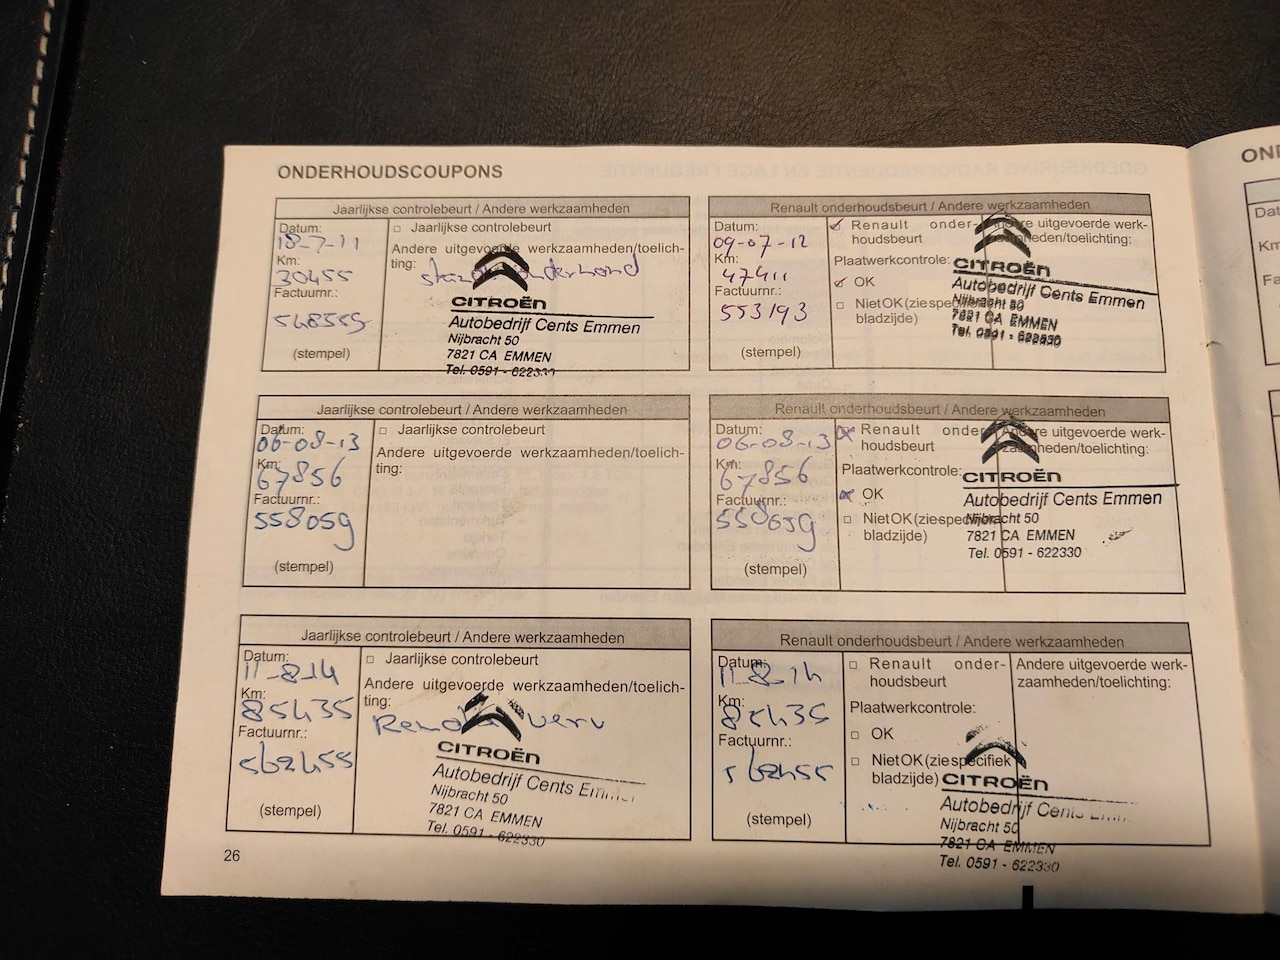 ONDERHOUDSCOUPONS
Jaarlijkse controlebeurt / Andere werkzaamheden
Datum:
18-7-11
Km:
30455
Factuurnr.:
548559
(stempel)
□ Jaarlijkse controlebeurt
Andere uitgevoerde werkzaamheden/toelich-
ting:
onderhoud
CITROËN
Autobedrijf Cents Emmen
Nijbracht 50
7821 CA EMMEN
Tel. 0591 - 622330
Renault onderhoudsbeurt / Andere werkzaamheden
Datum:
09-07-12
Km:
47411
Factuurnr.:
553193
(stempel)
Renault onder-
houdsbeurt
Plaatwerkcontrole:
OK
□ Niet OK (zie specifiek
bladzijde)
Andere uitgevoerde werk-
zaamheden/toelichting:
CITROËN
Autobedrijf Cents Emmen
Nijbracht 50
7821 CA EMMEN
Tel. 0591 - 622330
Jaarlijkse controlebeurt / Andere werkzaamheden
Datum:
06-08-13
Km:
67856
Factuurnr.:
558059
(stempel)
□ Jaarlijkse controlebeurt
Andere uitgevoerde werkzaamheden/toelich-
ting:
Renault onderhoudsbeurt / Andere werkzaamheden
Datum:
06-08-13
Km:
67856
Factuurnr.:
558059
(stempel)
Renault onder-
houdsbeurt
Plaatwerkcontrole:
OK
□ Niet OK (zie specifiek
bladzijde)
Andere uitgevoerde werk-
zaamheden/toelichting:
CITROËN
Autobedrijf Cents Emmen
Nijbracht 50
7821 CA EMMEN
Tel. 0591 - 622330
Jaarlijkse controlebeurt / Andere werkzaamheden
Datum:
11-8-14
Km:
85435
Factuurnr.:
562455
(stempel)
□ Jaarlijkse controlebeurt
Andere uitgevoerde werkzaamheden/toelich-
ting:
CITROËN
Autobedrijf Cents Emmen
Nijbracht 50
7821 CA EMMEN
Tel. 0591 - 622330
Renault onderhoudsbeurt / Andere werkzaamheden
Datum:
11-8-14
Km:
85435
Factuurnr.:
562455
(stempel)
□ Renault onder-
houdsbeurt
Plaatwerkcontrole:
□ OK
□ Niet OK (zie specifiek
bladzijde)
Andere uitgevoerde werk-
zaamheden/toelichting:
CITROËN
Autobedrijf Cents
Nijbracht 50
7821 CA EMMEN
Tel. 0591 - 622330
26